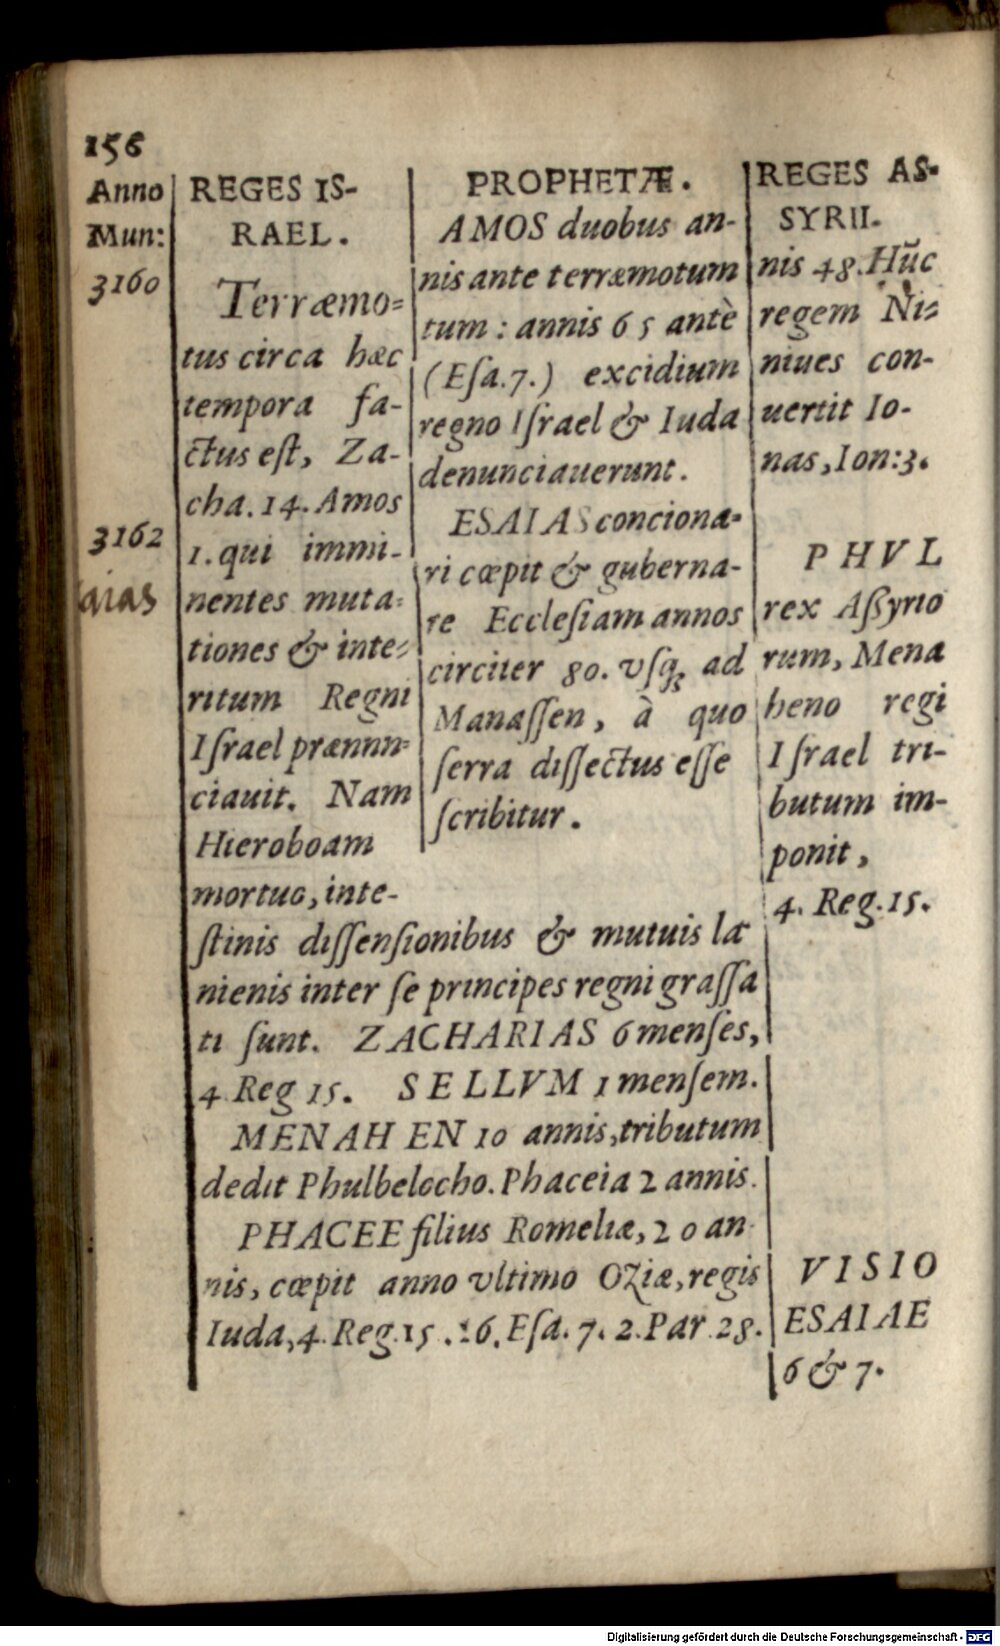 156
Anno
Mun:
3160
3162
aias
REGES IS-
RAEL.
Terræmo=
tus circa hæc
tempora fa-
ctus est, Za-
cha. 14. Amos
1. qui immi-
nentes muta=
tiones & inte=
ritum Regni
Israel prænnn=
ciauit. Nam
Hieroboam
mortuo, inte-
stinis dissensionibus & mutuis la
nienis inter se principes regni grassa
ti sunt. ZACHARIAS 6 menses,
4 Reg 15. SELLVM 1 mensem.
MENAHEN 10 annis, tributum
dedit Phulbelocho. Phaceia 2 annis.
PHACEE filius Romeliæ, 20 an
nis, cœpit anno vltimo Oziæ, regis
Iuda, 4. Reg. 15. 16. Esa. 7. 2. Par 28.
PROPHETÆ.
AMOS duobus an-
nis ante terræmotum
tum: annis 65 antè
(Esa. 7.) excidium
regno Israel & Iuda
denunciauerunt.
ESAIAS conciona-
ri cœpit & guberna-
re Ecclesiam annos
circiter 80. vsq; ad
Manassen, à quo
serra dissectus esse
scribitur.
REGES AS-
SYRII.
nis 48. Hūc
regem Ni=
niues con-
uertit Io-
nas, Ion: 3.
PHVL
rex Aßyrio
rum, Mena
heno regi
Israel tri-
butum im-
ponit,
4. Reg. 15.
VISIO
ESAIAE
6 & 7.
Digitalisierung gefördert durch die Deutsche Forschungsgemeinschaft - DFG